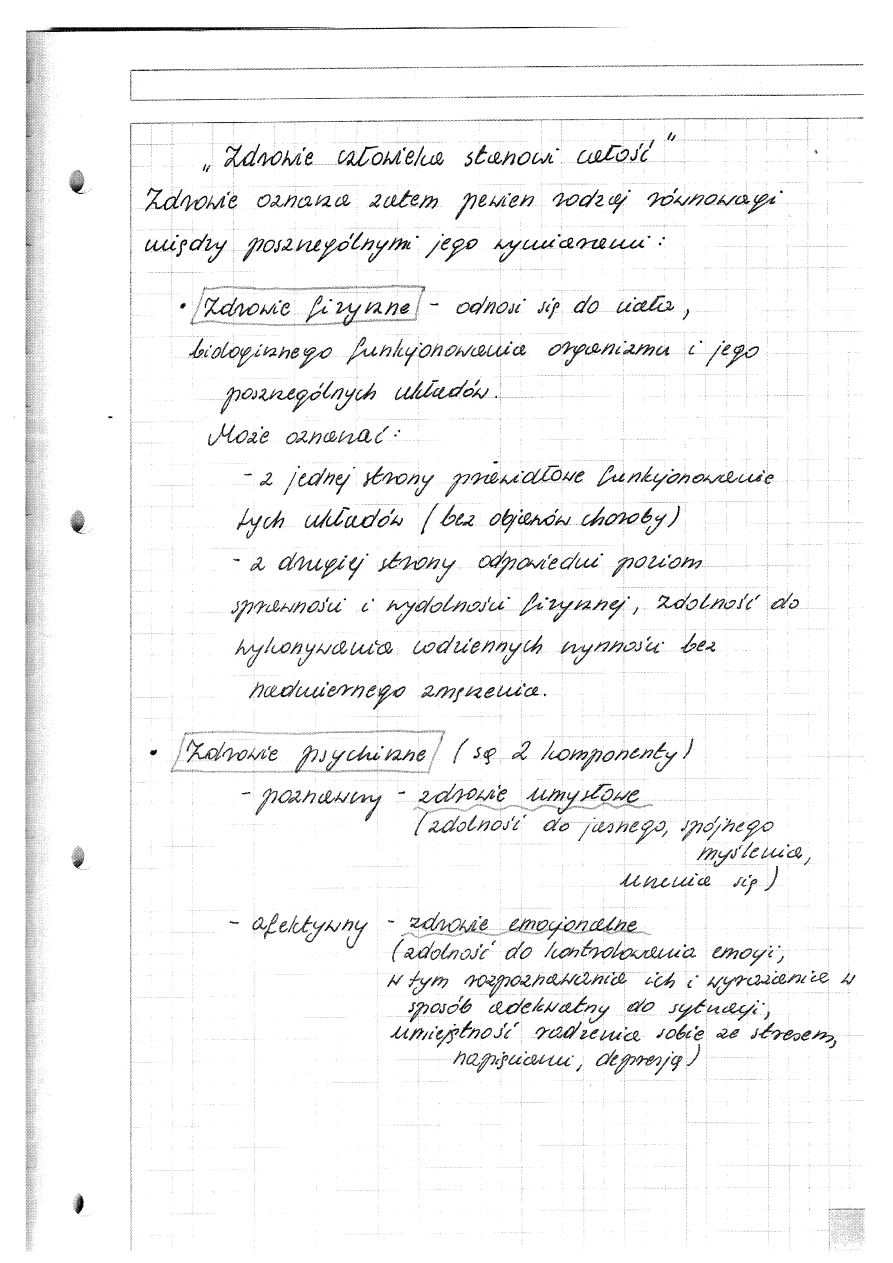 „Zdrowie człowieka stanowi całość"
Zdrowie oznacza zatem pewien rodzaj równowagi
między poszczególnymi jego wymiarami:
• Zdrowie fizyczne - odnosi się do ciała,
biologicznego funkcjonowania organizmu i jego
poszczególnych układów.
Może oznaczać:
- z jednej strony prawidłowe funkcjonowanie
tych układów (bez objawów choroby)
- z drugiej strony odpowiedni poziom
sprawności i wydolności fizycznej, zdolność do
wykonywania codziennych czynności bez
nadmiernego zmęczenia.
• Zdrowie psychiczne (są 2 komponenty)
- poznawczy - zdrowie umysłowe
(zdolność do jasnego, spójnego
myślenia,
uczenia się)
- afektywny - zdrowie emocjonalne
(zdolność do kontrolowania emocji,
w tym rozpoznawania ich i wyrażania w
sposób adekwatny do sytuacji,
umiejętność radzenia sobie ze stresem,
napięciami, depresją)